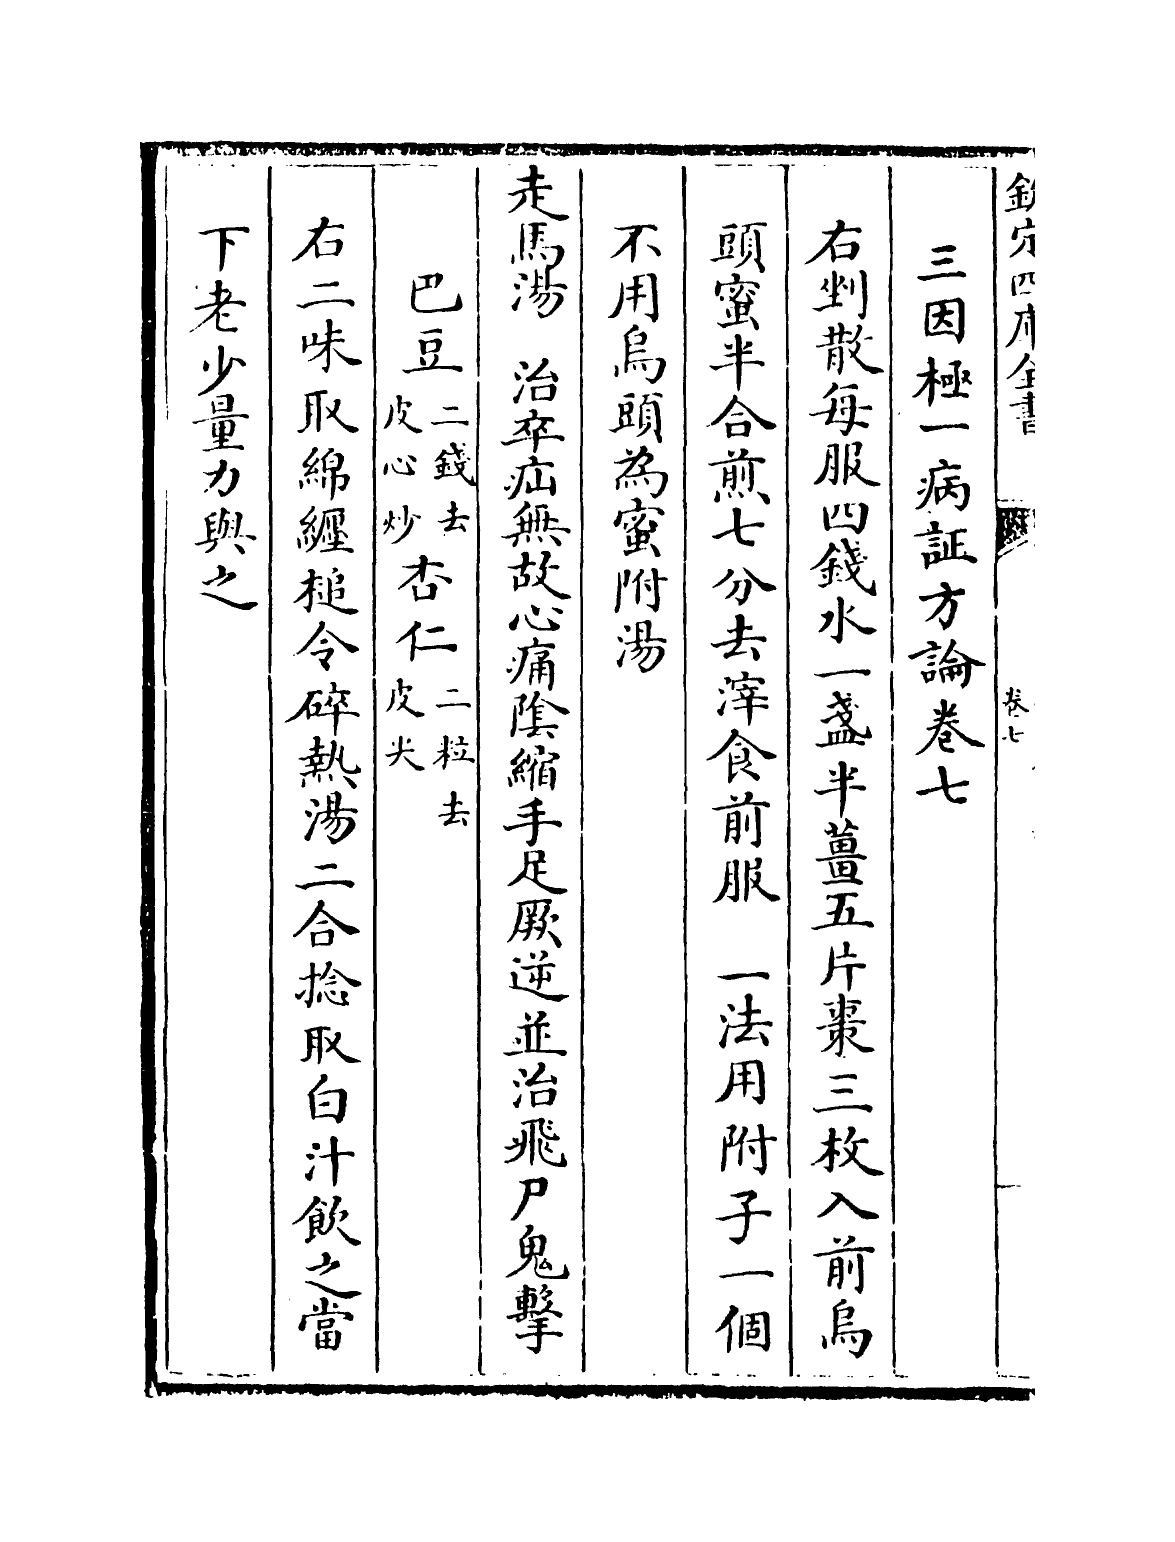 欽定四庫全書
卷七
三因極一病証方論卷七
右剉散每服四錢水一盞半薑五片棗三枚入前烏
頭蜜半合煎七分去滓食前服　一法用附子一個
不用烏頭為蜜附湯
走馬湯　治卒疝無故心痛陰縮手足厥逆並治飛尸鬼擊
巴豆二錢去皮心炒杏仁二粒去皮尖
右二味取綿纏槌令碎熱湯二合捻取白汁飲之當
下老少量力與之